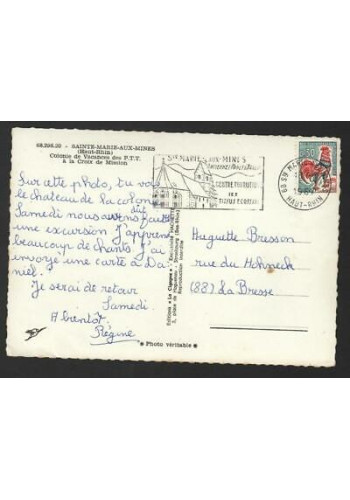 68.298.22 - SAINTE-MARIE-AUX-MINES
(Haut-Rhin)
Colonie de Vacances des P.T.T.
à la Croix de Mission
Sur cette photo, tu vois
le chateau de la colonie
Samedi nous avons fait
une excursion J'apprend
beaucoup de chants J'ai
envoyé une carte à Da-
niel.
Je serai de retour
Samedi.
A bientôt.
Régine
Editions "La Cigogne"
Reproduction interdite
STE MARIE-AUX-MINES
CENTRE
DES
68 STE MARIE
HAUT-RHIN
Huguette Bresson
rue du Hohneck
(88) La Bresse
* Photo véritable *